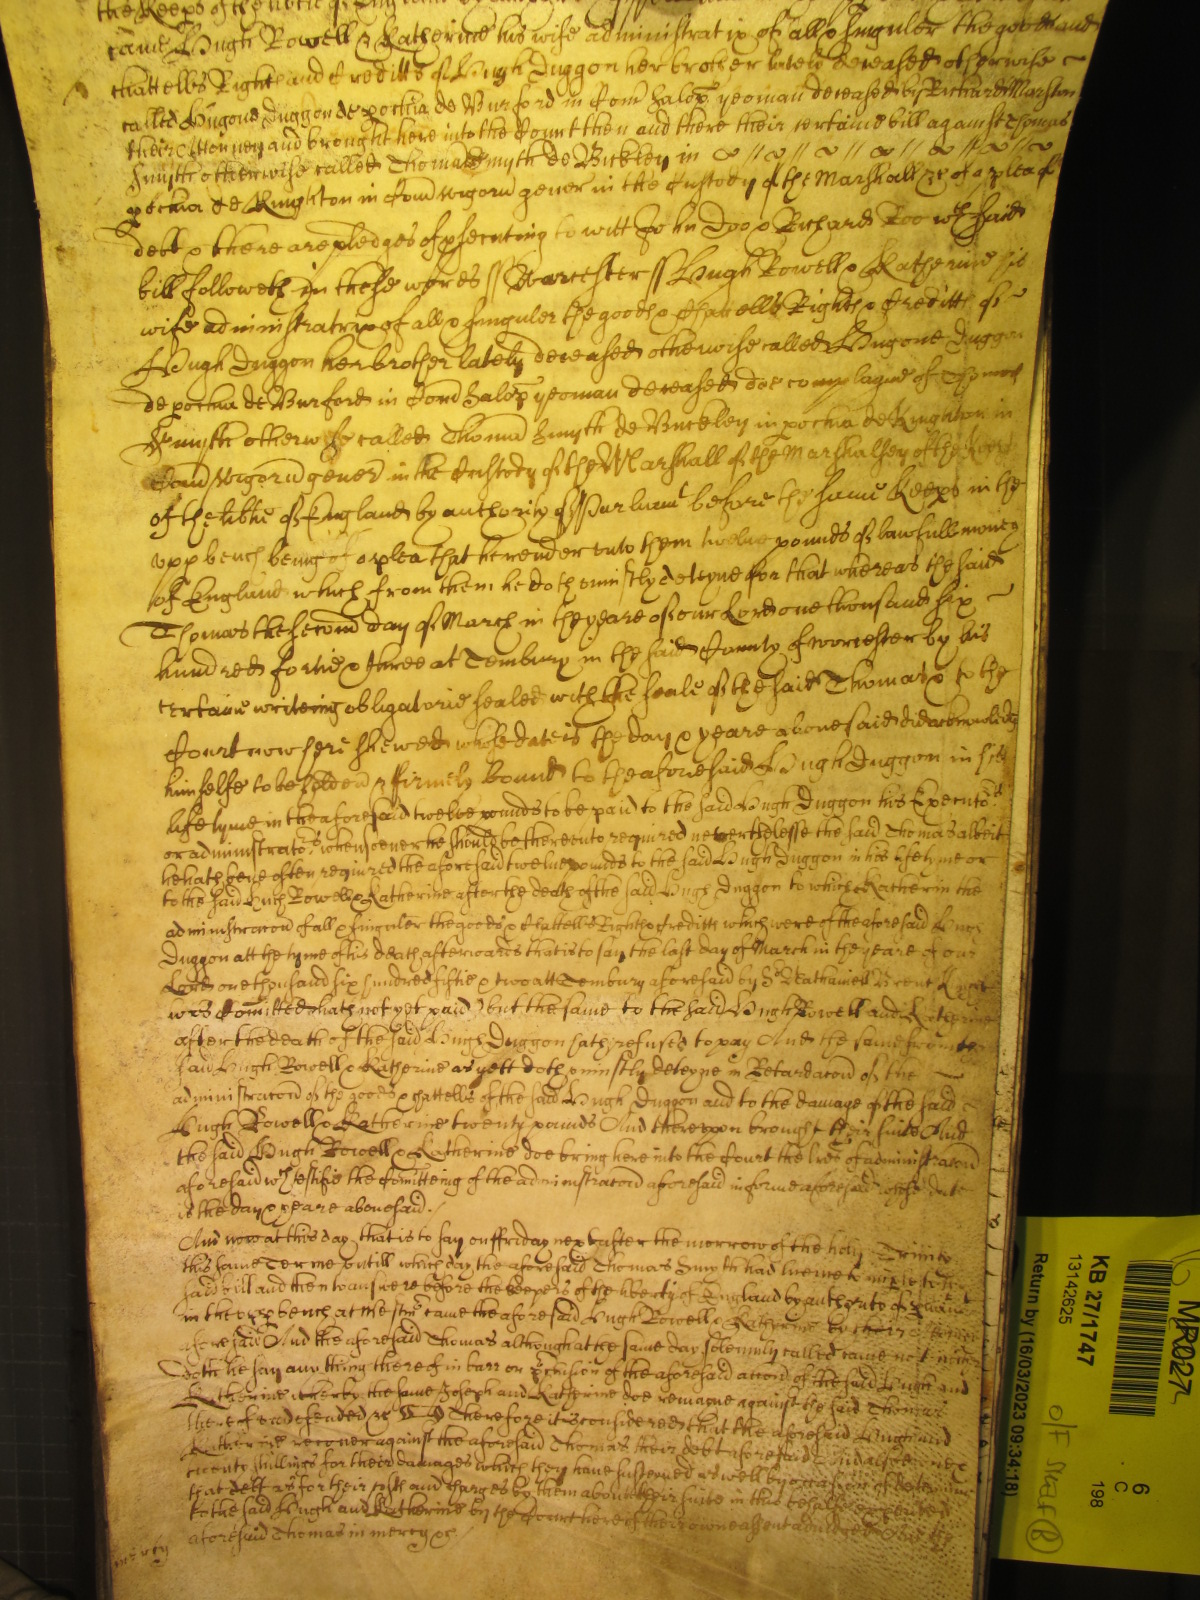 the Keeps of the libtie of England by
came Hugh Rowell & Katherine his wife administratrix of all & singuler the goods and
chattells Rights and Creditts of Hugh Duggon her brother lately deceased otherwise
called Hugone Duggon de pochia de Burford in Com Salop yeoman deceased by Richard Marston
their Attorney and brought here into the Court then and there their certaine bill against Thomas
Smyth otherwise called Thomas Smyth de Bickley in
pochia de Knighton in Com Wigorn gener in the Custody of the Marshall &c of a plea of
debt & there are pledges of psecuting to witt John Doo & Richard Roo wch said
bill followeth in these words // Worcester // Hugh Rowell & Katherine his
wife administratrix of all & singuler the goods & Chattells Rights & Creditts of
Hugh Duggon her brother lately deceased otherwise called Hugone Duggon
de pochia de Burford in Com Salop yeoman deceased doe complayne of Thomas
Smyth otherwise called Thomas Smyth de Bickley in pochia de Knighton in
Com Wigorn gener in the Custody of the Marshall of the Marshalsey of the Keeps
of the libtie of England by authority of Parliamt before the same Keeps in the
upp bench being of a plea that he render unto them twelve pounds of lawfull money
of England which from them he doth uniustly deteyne for that whereas the said
Thomas the second day of March in the yeare of our Lord one thousand six
hundred fortie & three at Tembury in the said County of Worcester by his
certaine writeing obligatorie sealed with the seale of the said Thomas & to the
Court now here shewed whose date is the day & yeare abovesaid did acknowledg
himselfe to be holden & firmely bound to the aforesaid Hugh Duggon in his
life tyme in the aforesaid twelve pounds to be paid to the said Hugh Duggon his Executors
or administrators whensoever he should be thereunto required neverthelesse the said Thomas albeit
he hath bene often required the aforesaid twelve pounds to the said Hugh Duggon in his lifetyme or
to the said Hugh Rowell & Katherine after the death of the said Hugh Duggon to which Katherin the
administracon of all & singuler the goods & Chattells Rights & Creditts which were of the aforesaid Hugh
Duggon att the tyme of his death afterwards that is to say the last day of March in the yeare of our
Lord one thousand six hundred fiftie & two att Tembury aforesaid by Sr Nathaniell Brent Knight
was Comitted hath not yet paid but the same to the said Hugh Rowell and Katherine
after the death of the said Hugh Duggon hath refused to pay And the same from the
said Hugh Rowell & Katherine as yett doth uniustly deteyne in Retardacon of the
administracon of the goods & chattells of the said Hugh Duggon and to the damage of the said
Hugh Rowell & Katherine twenty pounds And thereupon brought their suite And
the said Hugh Rowell & Katherine doe bring here into the Court the lres of administracon
aforesaid wch testifie the Comitteing of the administracon aforesaid in forme aforesaid whose date
is the day & yeare abovesaid
And now at this day that is to say on ffriday next after the morrow of the holy Trinitie
this same Terme untill which day the aforesaid Thomas Smyth had licence to imparle to the
said bill and then to answere before the Keepers of the liberty of England by authoritie of
in the upp bench at Westmr came the aforesaid Hugh Rowell & Katherine by their Attorney
aforesaid And the aforesaid Thomas although at the same day solemnly called came not neither
doth he say any thing thereof in barr or preclusion of the aforesaid accon of the said Hugh and
Katherine whereby the same Joseph and Katherine doe remayne against the said Thomas
thereof undefended &c Therefore it is considered that the aforesaid Hugh and
Katherine recover against the aforesaid Thomas their debt aforesaid And
twenty shillings for their damages which they have susteyned as well by occasion of deteyning
that debt as for their costs and charges by them about their suite in this behalfe expended
to the said Hugh and Katherine by the Court here of their owne assent adiudged And the
aforesaid Thomas in mercy &c
mercy
KB 27/1747
13142625
Return by (16/03/2023 09:34:18)
6
C
198
MR027